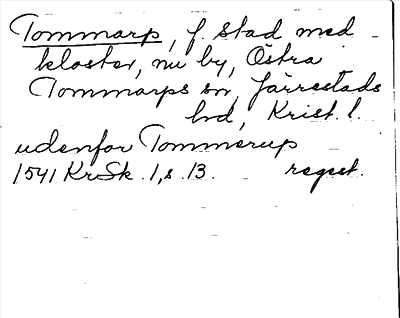 Tommarp, f. stad med
kloster, nu by, Östra
Tommarps sn, Järrestads
hd, Krist. l.
udenfor Tommerup
1541 KrSk. 1, s. 13. regest.